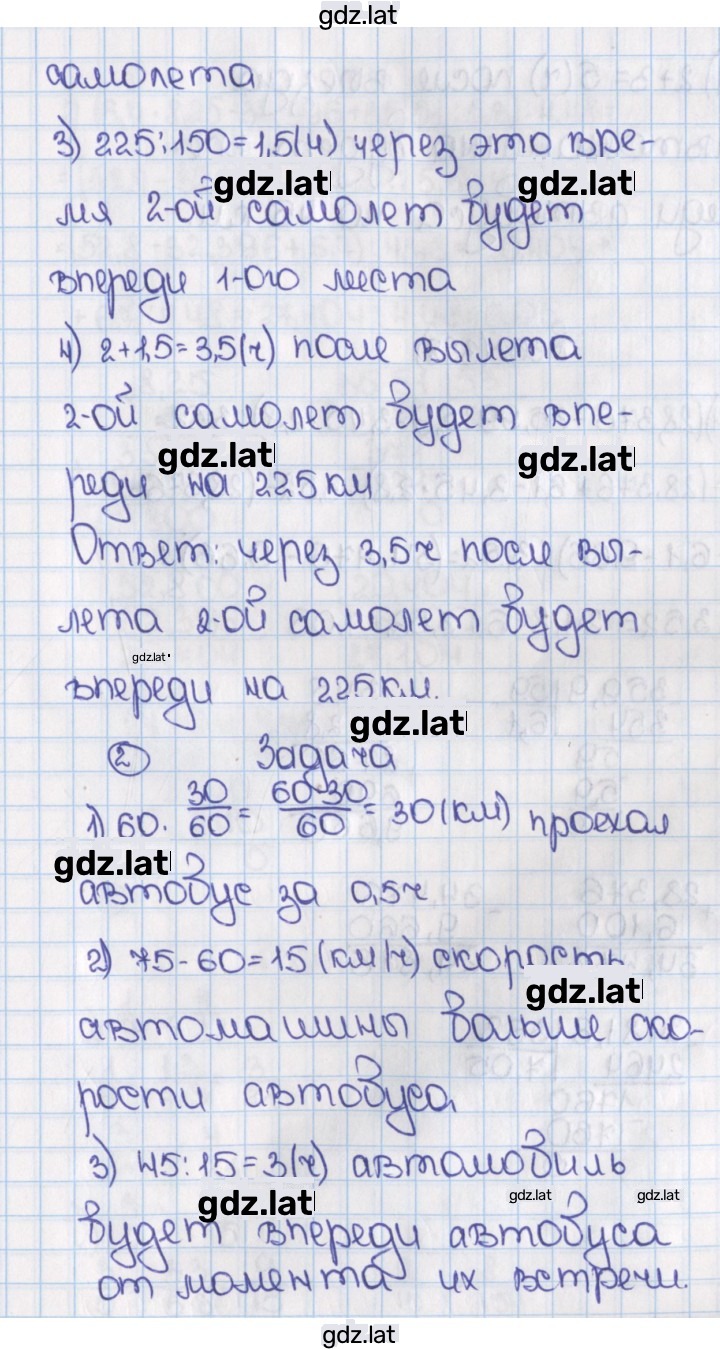 gdz.lat
самолета
3) 225:150=1,5(ч) через это вре-
gdz.lat gdz.lat
мя 2-ой самолет будет
впереди 1-ого места
4) 2+1,5=3,5(ч) после вылета
2-ой самолет будет впе-
gdz.lat gdz.lat
реди на 225 км
Ответ: через 3,5ч после вы-
лета 2-ой самолет будет
gdz.lat
впереди на 225км.
gdz.lat
2 Задача
1) 60· 30/60 = 60·30/60 = 30(км) проехал
gdz.lat
автобус за 0,5ч
2) 75-60=15(км/ч) скорость
gdz.lat
автомашины больше ско-
рости автобуса
3) 45:15=3(ч) автомобиль
gdz.lat gdz.lat gdz.lat
будет впереди автобуса
от момента их встречи.
gdz.lat